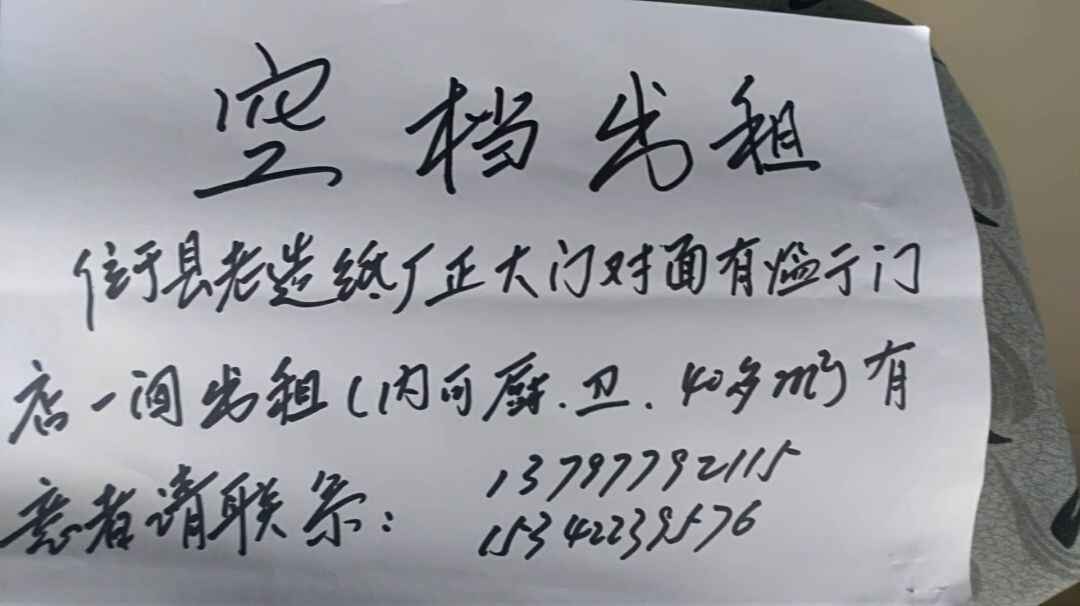 空档出租
位于县老造纸厂正大门对面有临于门
店一间出租(内可厨.卫.40多m²)有
意者请联系:
13797792115
15342239576